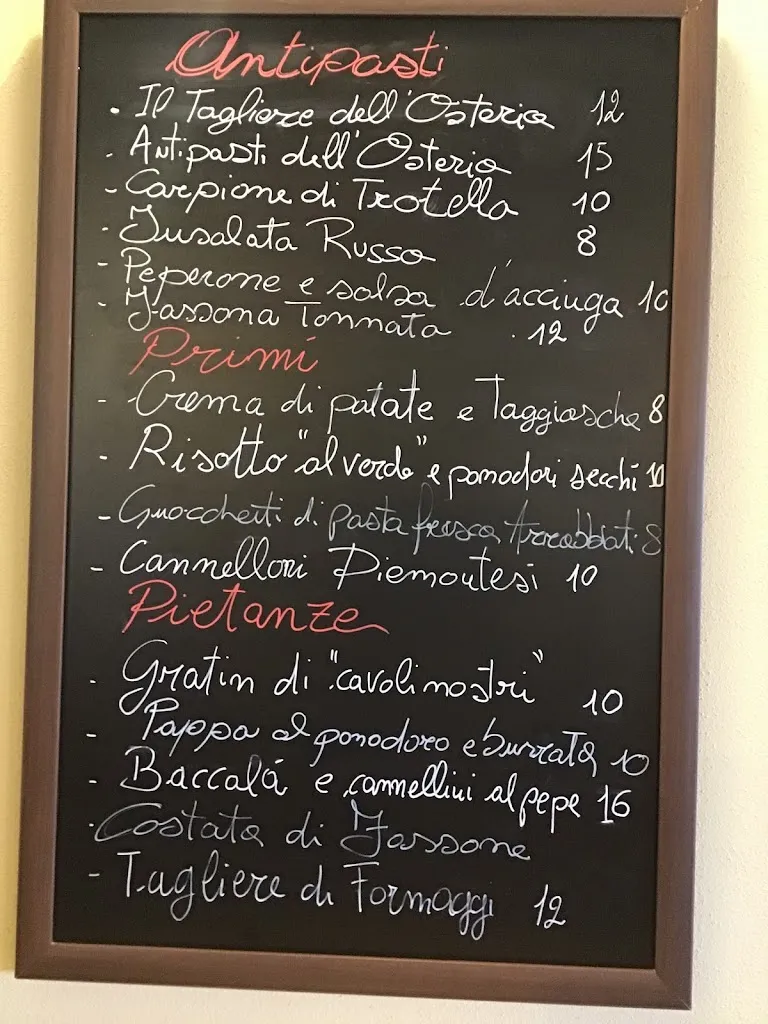 Antipasti
- Il Tagliere dell'Osteria 12
- Antipasti dell'Osteria 15
- Carpione di Trotella 10
- Insalata Russa 8
- Peperone e salsa d'acciuga 10
- Fassona Tonnata 12
Primi
- Crema di patate e Taggiasche 8
- Risotto "al verde" e pomodori secchi 10
- Gnoccheti di pasta fresca Arrabbiati 8
- Cannelloni Piemontesi 10
Pietanze
- Gratin di "cavoli nostri" 10
- Pappa al pomodoro e burrata 10
- Baccalá e cannellini al pepe 16
- Costata di Fassone
- Tagliere di Formaggi 12